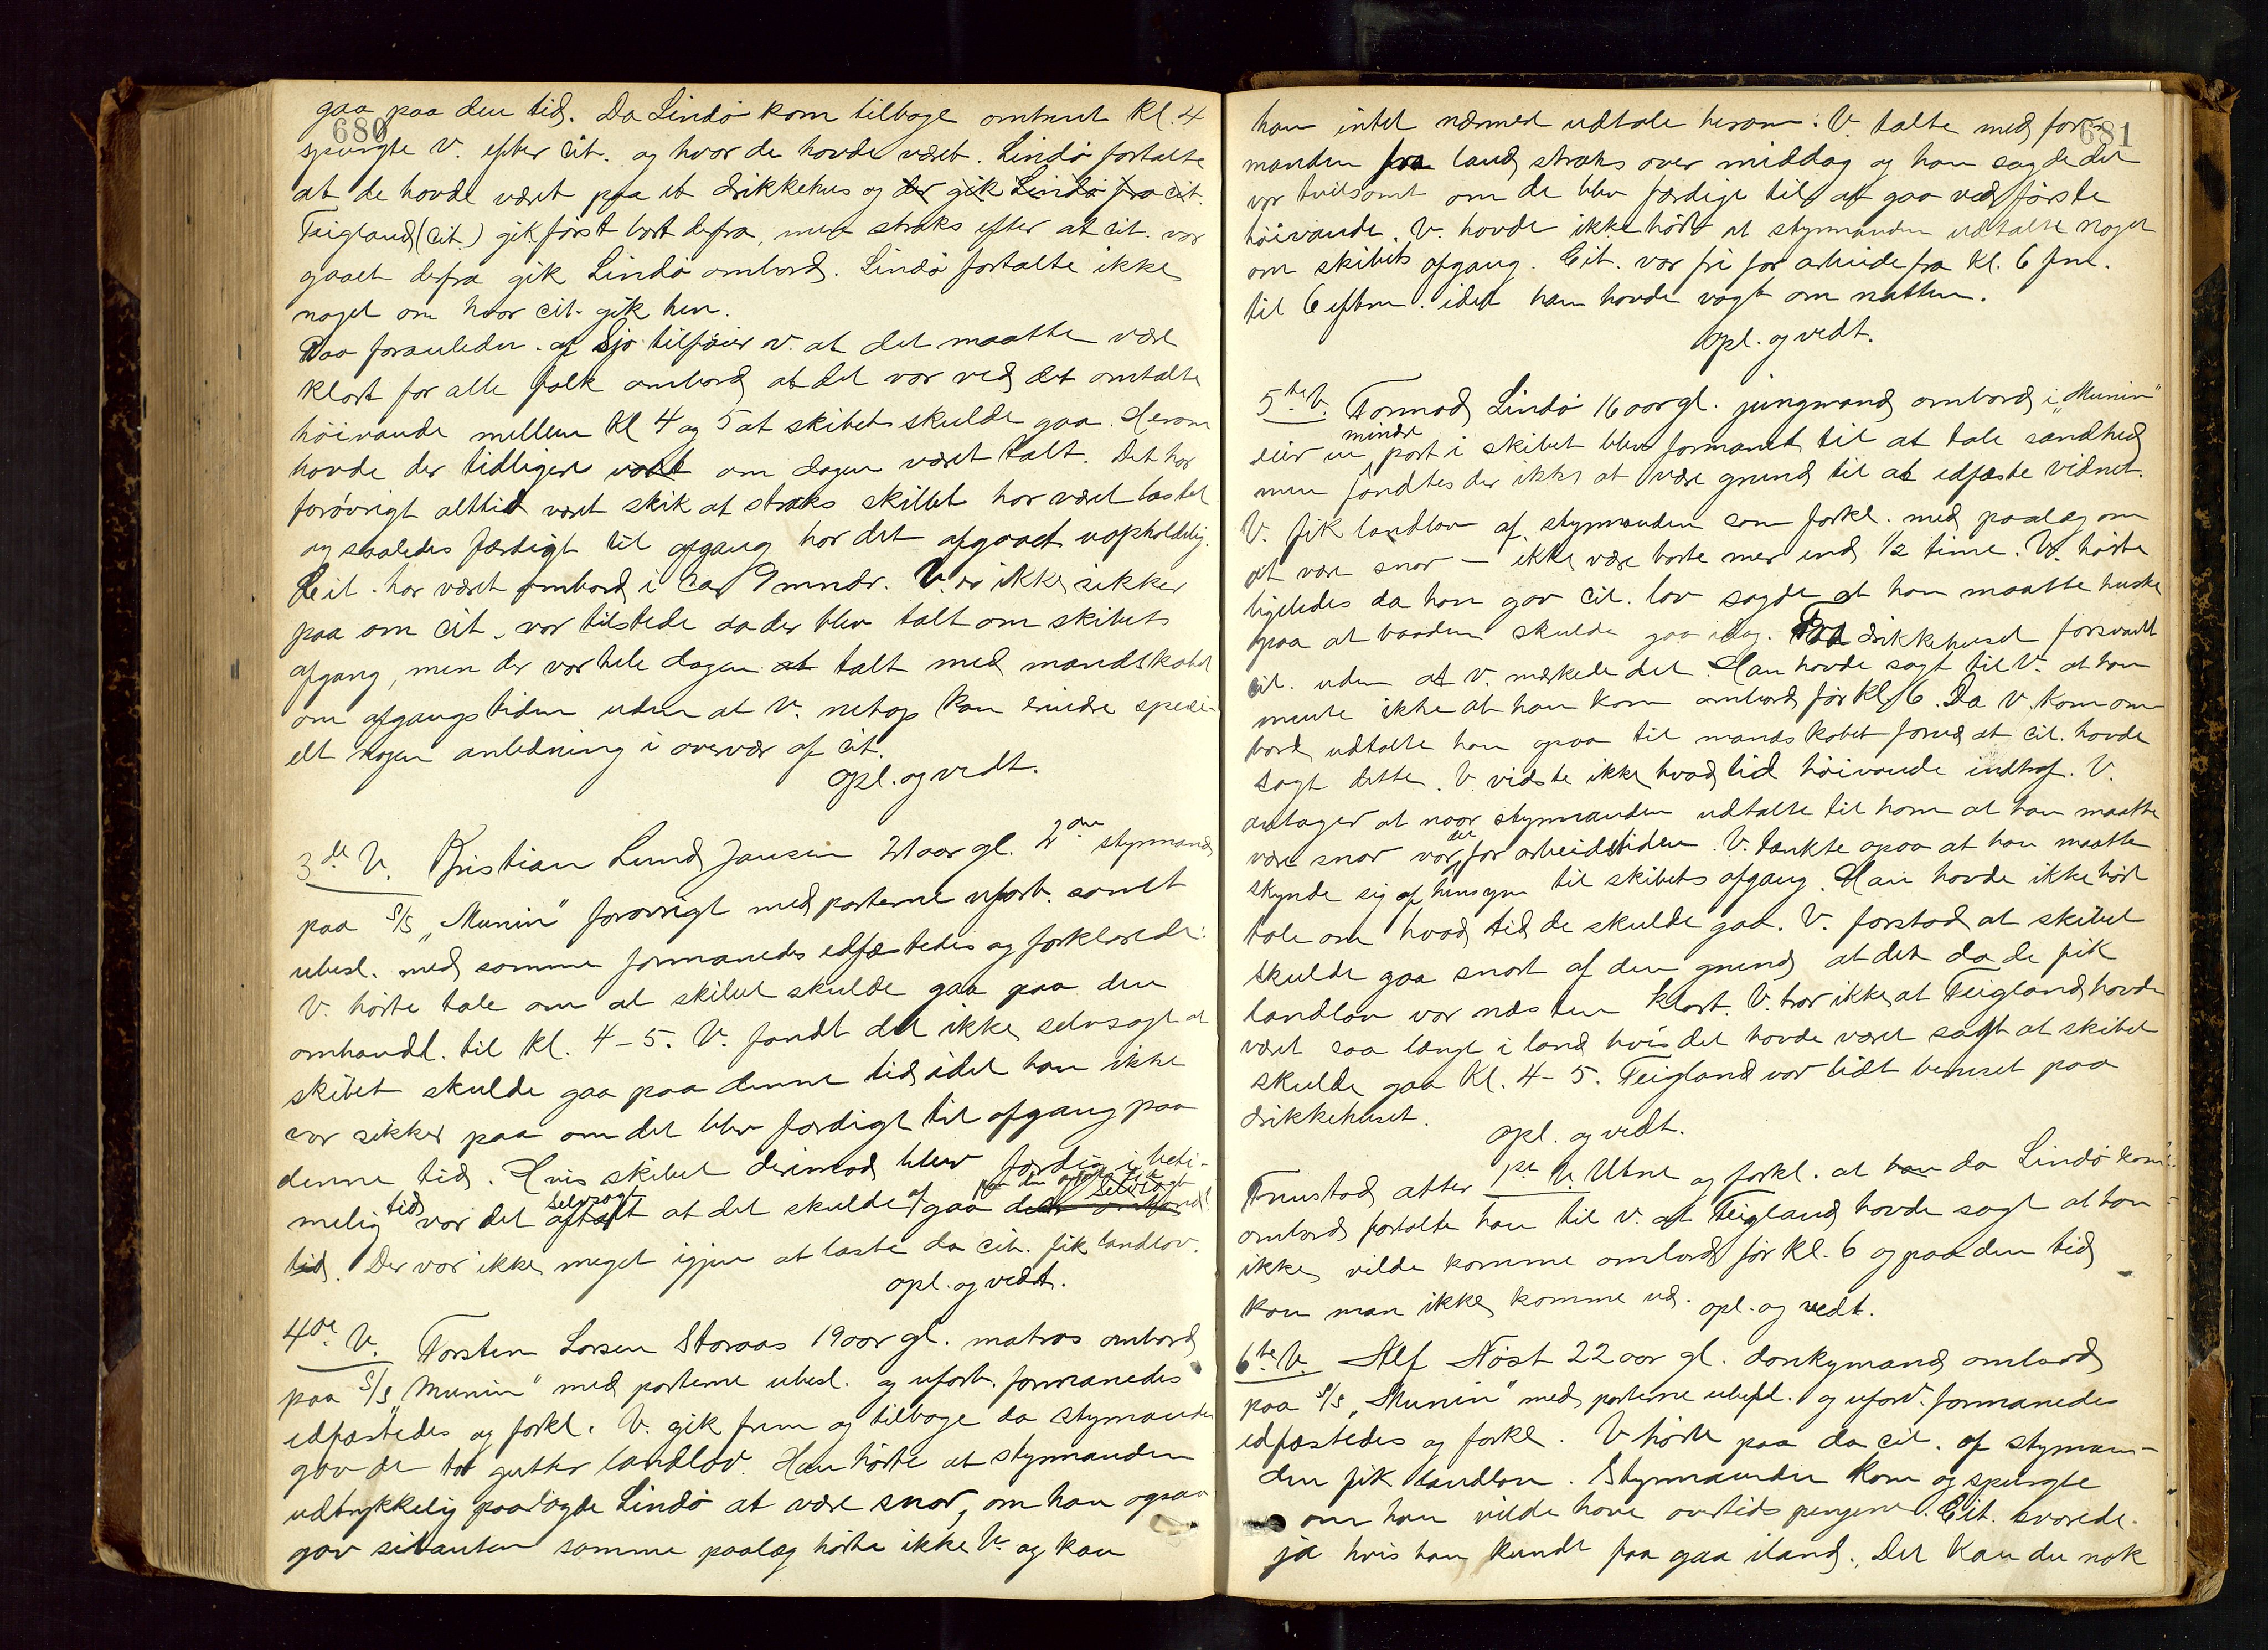 680
gaa paa den tid. Da Lindø kom tilbage omtrent Kl. 4
spurgte V. efter cit. og hvor de havde været. Lindø fortalte
at de havde været paa et drikkehus og der gik Lindø fra cit.
Teigland (cit.) gik først bort defra, men straks efter at cit. var
gaaet defra gik Lindø ombord. Lindø fortalte ikke
noget om hvor cit. gik hen.
Paa foranledn. af Sjo tilføier v. at det maatte være
klart for alle folk ombord at det var ved det omtalte
høivande mellem Kl 4 og 5 at skibet skulde gaa. Herom
havde der tidligere været om dagen været talt. Det har
forøvrigt alttid været skik at straks skibet har været lastet
og saaledes færdigt til afgang har det afgaaet uopholdelig.
Cit. har været ombord i ca 9 mndr. V. er ikke sikker
paa om cit. var tilstede da der blev talt om skibets
afgang, men der var hele dagen at talt med mandskabet
om afgangstiden uden at V. netop kan erindre speci-
elt nogen anledning i overvær af cit.
opl. og vedt.
3de V. Kristian Lund Jansen 21 aar gl. 2den styrmand
paa S/S „Munin" forøvrigt med parterne uforb. samt
ubesl. med samme formanedes edfæstedes og forklarede:
V. hørte tale om at skibet skulde gaa paa den
omhandl. tid kl. 4-5. V. fandt det ikke selvsagt at
skibet skulde gaa paa denne tid idet han ikke
var sikker paa om det blev færdigt til afgang paa
denne tid. Hvis skibet derimod blev færdig i beti-
melig tid var det selvsagt aftalt at det skulde afgaa
tid. Der var ikke meget igjen at laste da cit. fik landlov.
opl. og vedt.
4de V. Torsten Larsen Storaas 19 aar gl. matros ombord
paa S/S „Munin" med parterne ubesl. og uforb. formanedes
edfæstedes og forkl. V. gik frem og tilbage da styrmanden
gav de to gutter landlov. Han hørte at styrmanden
udtrykkelig paalagde Lindø at være snar, om han ogsaa
gav sitanten samme paalæg hørte ikke V. og kan
681
han intet nærmere udtale herom. V. talte med for-
manden fra land straks over middag og han sagde det
var tvilsomt om de blev færdige til at gaa ved første
høivande. V. havde ikke hørt at styrmanden udtalte noget
om skibets afgang. Cit. var fri for arbeide fra Kl. 6 fm.
til 6 eftm. idet han havde vagt om natten.
opl. og vedt.
5te V. Tormod Lindø 16 aar gl. jungmand ombord i „Munin"
eier en mindre part i skibet blev formanet til at tale sandhed
men fandtes der ikke at være grund til at edfæste vidnet.
V. fik landlov af styrmanden som forkl. med paalæg om
at være snar — ikke være borte mer end 1/2 time. V. hørte
ligeledes da han gav cit. lov sagde at han maatte huske
paa at baaden skulde gaa idag. Fra drikkehuset forsvandt
cit. uden at v. mærkede det. Han havde sagt til V. at han
mente ikke at han kom ombord før Kl. 6. Da V. kom om-
bord udtalte han ogsaa til mandskabet forud at cit. havde
sagt dette. V. vidste ikke hvad tid høivande indtraf. V.
antager at naar styrmanden udtalte til ham at han maatte
være snar var det for arbeidstiden. V. tænkte ogsaa at han maatte
skynde sig af hensyn til skibets afgang. Han havde ikke hørt
tale om hvad tid de skulde gaa. V. forstod at skibet
skulde gaa snart af den grund at det da de fik
landlov var næsten klart. V. tror ikke at Teigland havde
været saa længe i land hvis det havde været sagt at skibet
skulde gaa Kl. 4-5. Teigland var lidt beruset paa
drikkehuset.
opl. og vedt.
Fremstod atter 1ste V. Utne og forkl. at han da Lindø kom
ombord fortalte han til v. at Teigland havde sagt at han
ikke vilde komme ombord før kl. 6 og paa den tid
kan man ikke komme ud. opl. og vedt.
6te V. Alf Nøst 22 aar gl. donkymand ombord
paa S/S „Munin" med parterne ubesl. og uforb. formanedes
edfæstedes og forkl. V hørte paa da cit. af styrman-
den fik landlov. Styrmanden kom og spurgte
om han vilde have overtidspengene. Cit. svarede
ja hvis han kunde faa gaa iland. Det kan du nok